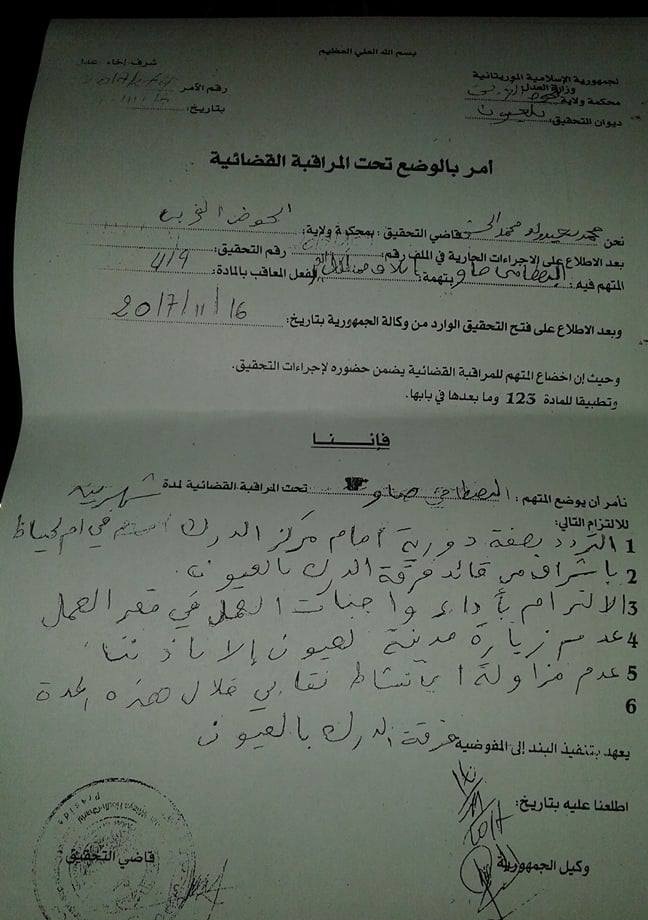 بسم الله العلي العظيم
الجمهورية الإسلامية الموريتانية
شرف إخاء عدل
وزارة العدل
محكمة ولاية
رقم الأمر
ديوان التحقيق: بلعيون
بتاريخ:
أمر بالوضع تحت المراقبة القضائية
نحن محمد سعيد ولد محمد قاضي التحقيق : بمحكمة ولاية: الحوض الغربي
بعد الاطلاع على الاجراءات الجارية في الملف رقم: رقم التحقيق:
المتهم فيه: بتهمة: الفعل المعاقب بالمادة:
وبعد الاطلاع على فتح التحقيق الوارد من وكالة الجمهورية بتاريخ: 2017/11/16
وحيث إن اخضاع المتهم للمراقبة القضائية يضمن حضوره لإجراءات التحقيق.
وتطبيقا للمادة 123 وما بعدها في بابها.
فإننا
نأمر أن يوضع المتهم : تحت المراقبة القضائية لمدة شهرين
للالتزام التالي:
1 التردد بصفة دورية أمام مركز الدرك في ام لحياظ
2 باشراف من قائد فرقة الدرك بالعيون.
3 الالتزام بأداء واجبات العمل في مقر العمل
4 عدم زيارة مدينة لعيون إلا باذننا
5 عدم مزاولة اي نشاط نقابي خلال هذه المدة
6
يعهد بتنفيذ البند إلى المفوضية فرقة الدرك بالعيون
اطلعنا عليه بتاريخ:
وكيل الجمهورية
قاضي التحقيق